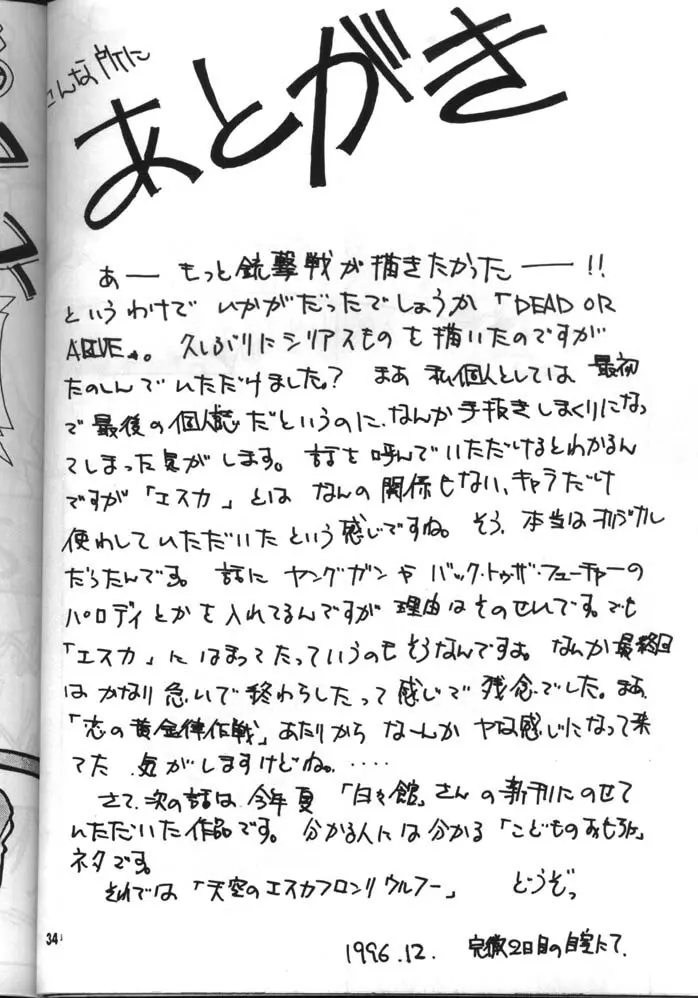 こんな所に
あとがき
あー もっと銃撃戦が描きたかったー!!
というわけで いかがだったでしょうか「DEAD OR
ALIVE」。久しぶりにシリアスものを描いたのですが
たのしんでいただけました? まあ 私個人としては 最初
で最後の個人誌だというのに、なんか手抜きしまくりになっ
てしまった気がします。話を呼んでいただけるとわかるん
ですが「エスカ」とは なんの関係もない、キャラだけ
使わしていただいたという感じですね。そう、本当はオリジナル
だったんです。話に ヤングガンや バック・トゥ・ザ・フューチャーの
パロディとかを入れてるんですが 理由はそのせいです。でも
「エスカ」にはまってたっていうのもそうなんですよ。なんか最終回
はかなり急いで終わらしたって感じで残念でした。まあ
「恋の黄金律作戦」あたりから なーんか ヤな感じになって来
てた 気がしますけどね。・・・・
さて、次の話は 今年夏 「白々館」さんの新刊にのせて
いただいた作品です。分かる人には分かる「こどものおもちゃ」
ネタです。
それでは「天空のエスカフロンリウルフー」 どうぞっ
34
1996.12. 完徹2日目の自室にて.